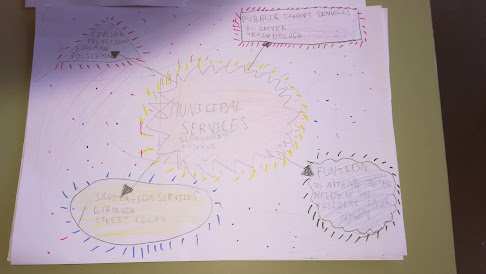 PROTECTION
FIREMAN
POLICEMAN
PUBBLIC TRANSPORT SERVICES
BUS DRIVER
TRAIN DRIVER
MUNICIPAL
SERVICES
SANITATION SERVICES
GARDENER
STREET CLEAN
FUNTION
TO ATTEND TO THE
NEEDS OF THE
RESIDENT